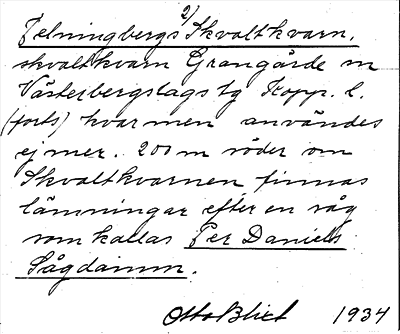 2)
Felningbergs Skvaltkvarn.
skvaltkvarn Grangärde sn
Västerbergslags tg Kopp. l.
(forts) kvar men användes
ej mer. 200 m söder om
Skvaltkvarnen finnas
lämningar efter en såg
som kallas Per Daniels
Sågdamm.
Otto Blixt 1934